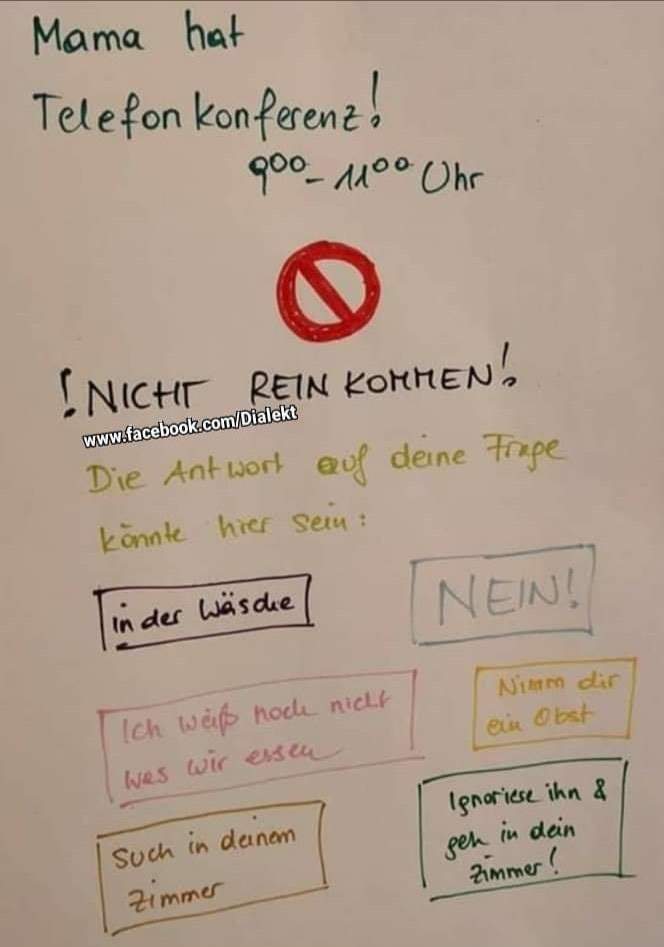 Mama hat
Telefonkonferenz!
9⁰⁰ - 11⁰⁰ Uhr
! NICHT REIN KOMMEN!
www.facebook.com/Dialekt
Die Antwort auf deine Frage
könnte hier sein:
in der Wäsche
NEIN!
Ich weiß noch nicht
was wir essen
Nimm dir
ein Obst
Such in deinem
Zimmer
Ignoriese ihn &
geh in dein
Zimmer!